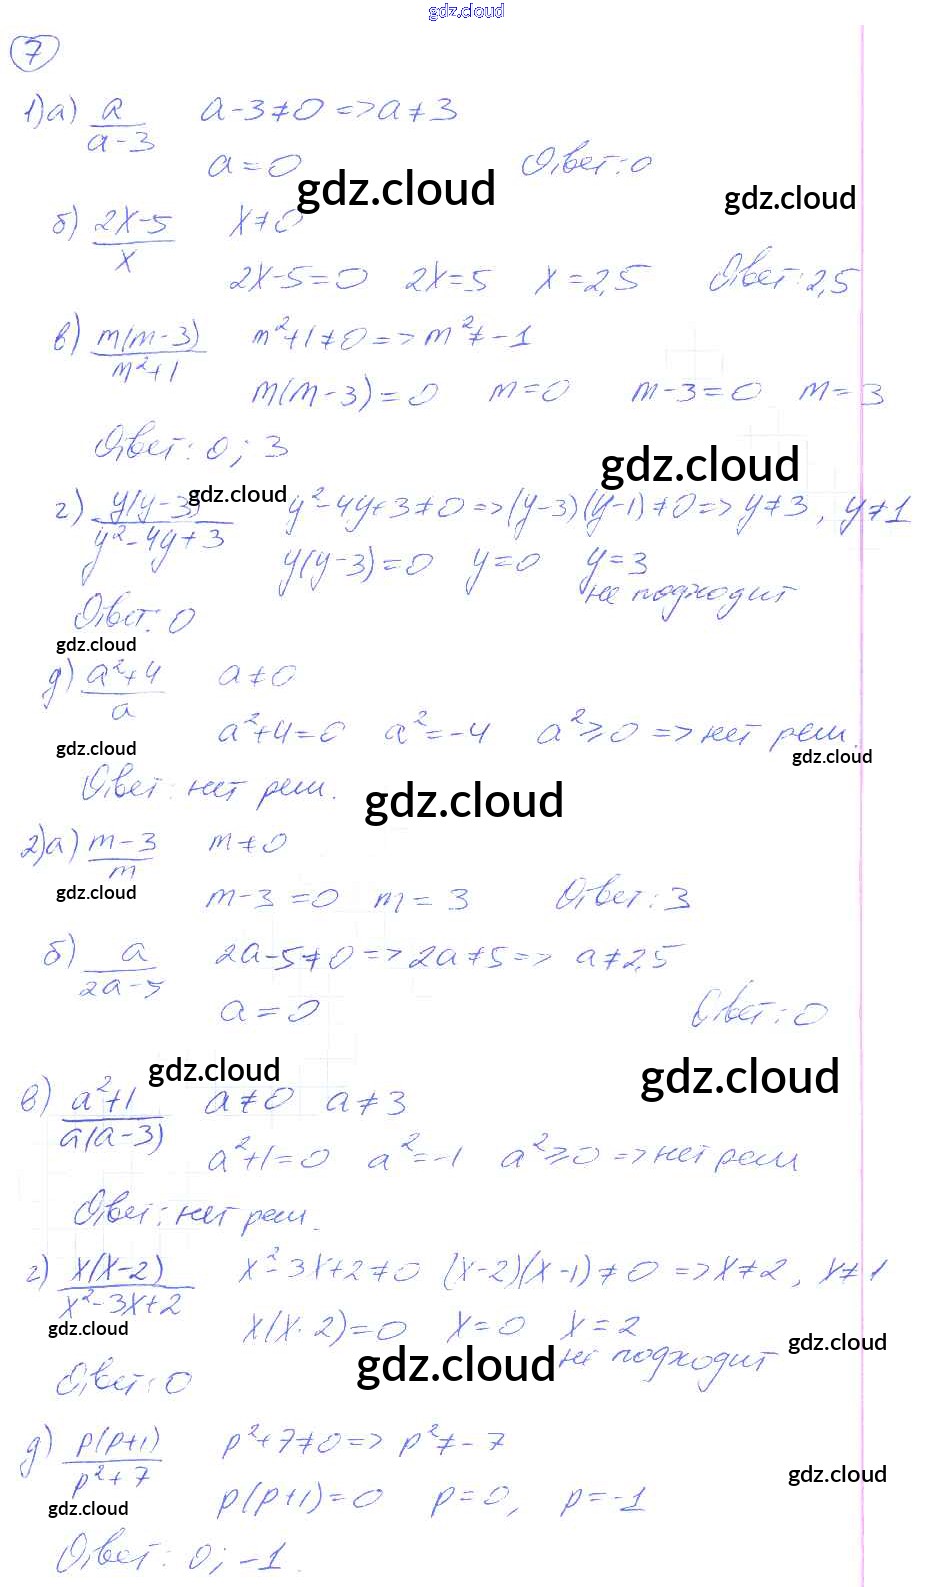 gdz.cloud
7
1)а) a/(a-3) a-3≠0 => a≠3
a=0 Ответ: 0
gdz.cloud gdz.cloud
б) (2x-5)/x x≠0
2x-5=0 2x=5 x=2,5 Ответ: 2,5
в) m(m-3)/(m²+1) m²+1≠0 => m²≠-1
m(m-3)=0 m=0 m-3=0 m=3
Ответ: 0; 3
gdz.cloud
gdz.cloud
г) y(y-3)/(y²-4y+3) y²-4y+3≠0 => (y-3)(y-1)≠0 => y≠3, y≠1
y(y-3)=0 y=0 y=3
не подходит
Ответ: 0
gdz.cloud
д) (a²+4)/a a≠0
a²+4=0 a²=-4 a²≥0 => нет реш.
gdz.cloud gdz.cloud
Ответ: нет реш.
gdz.cloud
2)а) (m-3)/m m≠0
gdz.cloud
m-3=0 m=3 Ответ: 3
б) a/(2a-5) 2a-5≠0 => 2a≠5 => a≠2,5
a=0 Ответ: 0
gdz.cloud gdz.cloud
в) (a²+1)/(a(a-3)) a≠0 a≠3
a²+1=0 a²=-1 a²≥0 => нет реш
Ответ: нет реш.
г) x(x-2)/(x²-3x+2) x²-3x+2≠0 (x-2)(x-1)≠0 => x≠2, x≠1
gdz.cloud
x(x-2)=0 x=0 x=2
gdz.cloud
не подходит
gdz.cloud
Ответ: 0
д) p(p+1)/(p²+7) p²+7≠0 => p²≠-7
gdz.cloud
p(p+1)=0 p=0, p=-1
gdz.cloud
Ответ: 0; -1.